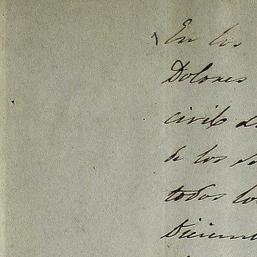 En los
Dolores
civil d
de los
todos lo
Diciem